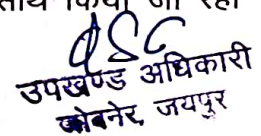 साथ किया जा रहा
उपखण्ड अधिकारी
जोबनेर, जयपुर